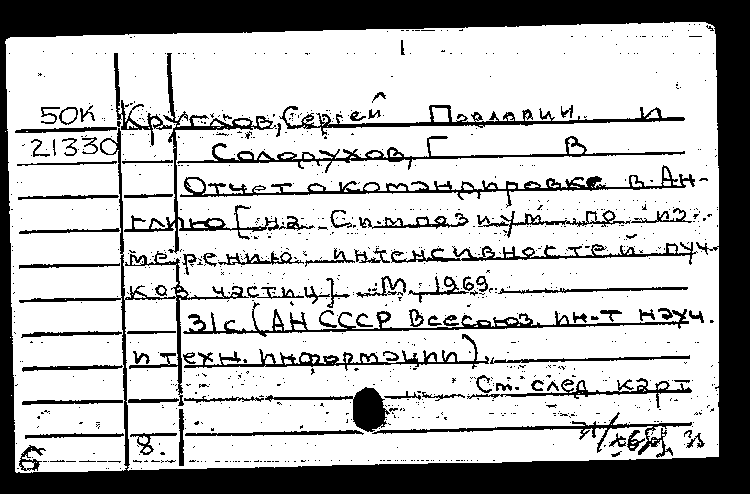 50К Круглов, Сергей Павлович и
21330 Солодухов, Г В
Отчет о командировке в Ан-
глию [на Симпозиум по из-
мерению интенсивностей пуч-
ков частиц] М, 1969
31с. (АН СССР Всесоюз. ин-т науч.
и техн. информации).
См. след. карт
8.
6